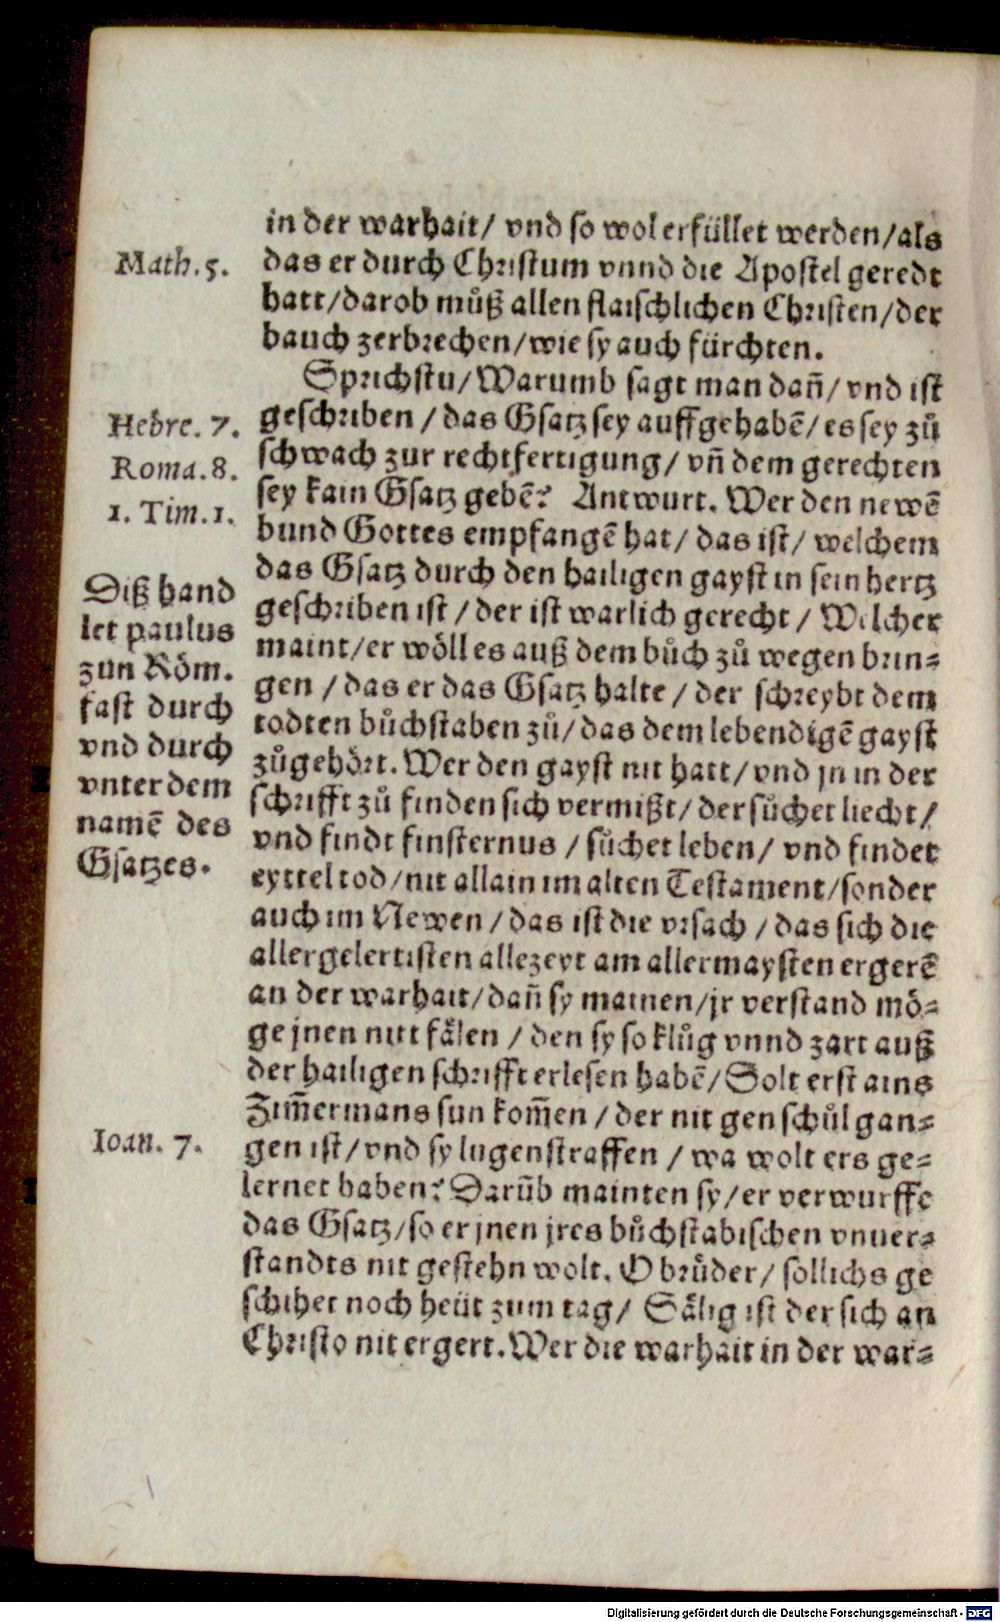 in der warhait/ vnd so wol erfüllet werden/als
Math.5.
das er durch Christum vnnd die Apostel geredt
hatt/darob můß allen flaischlichen Christen/der
bauch zerbrechen/wie sy auch fürchten.
Sprichstu/Warumb sagt man dañ/vnd ist
Hebre. 7.
geschriben/das Gsatz sey auffgehabē/es sey zů
Roma.8.
schwach zur rechtfertigung/vñ dem gerechten
1. Tim.1.
sey kain Gsatz gebē? Antwurt. Wer den newē
bund Gottes empfangē hat/das ist/welchem
das Gsatz durch den hailigen gayst in sein hertz
geschriben ist/der ist warlich gerecht/Welcher
maint/er wöll es auß dem bůch zů wegen brin⸗
gen/das er das Gsatz halte/der schreybt dem
todten bůchstaben zů/das dem lebendigē gayst
zůgehört. Wer den gayst nit hatt/vnd jn in der
schrifft zů finden sich vermißt/der sůchet liecht/
vnd findt finsternus/sůchet leben/vnd findet
eyttel tod/nit allain im alten Testament/sonder
Diß hand
let paulus
zun Röm.
fast durch
vnd durch
vnter dem
namē des
Gsatzes.
auch im Newen/das ist die vrsach/das sich die
allergelertisten allezeyt am allermaysten ergerē
an der warhait/dañ sy mainen/jr verstand mö⸗
ge jnen nitt fälen/den sy so klůg vnnd zart auß
der hailigen schrifft erlesen habē/Solt erst ains
Zim̄ermans sun kom̄en/der nit gen schůl gan⸗
Ioan. 7.
gen ist/vnd sy lugenstraffen/wa wolt ers ge⸗
lernet haben? Darūb mainten sy/er verwurffe
das Gsatz/so er jnen jres bůchstabischen vnuer⸗
standts nit gestehn wolt. O brüder/sollichs ge
schihet noch heüt zum tag/Sälig ist der sich an
Christo nit ergert. Wer die warhait in der war⸗
Digitalisierung gefördert durch die Deutsche Forschungsgemeinschaft - DFG